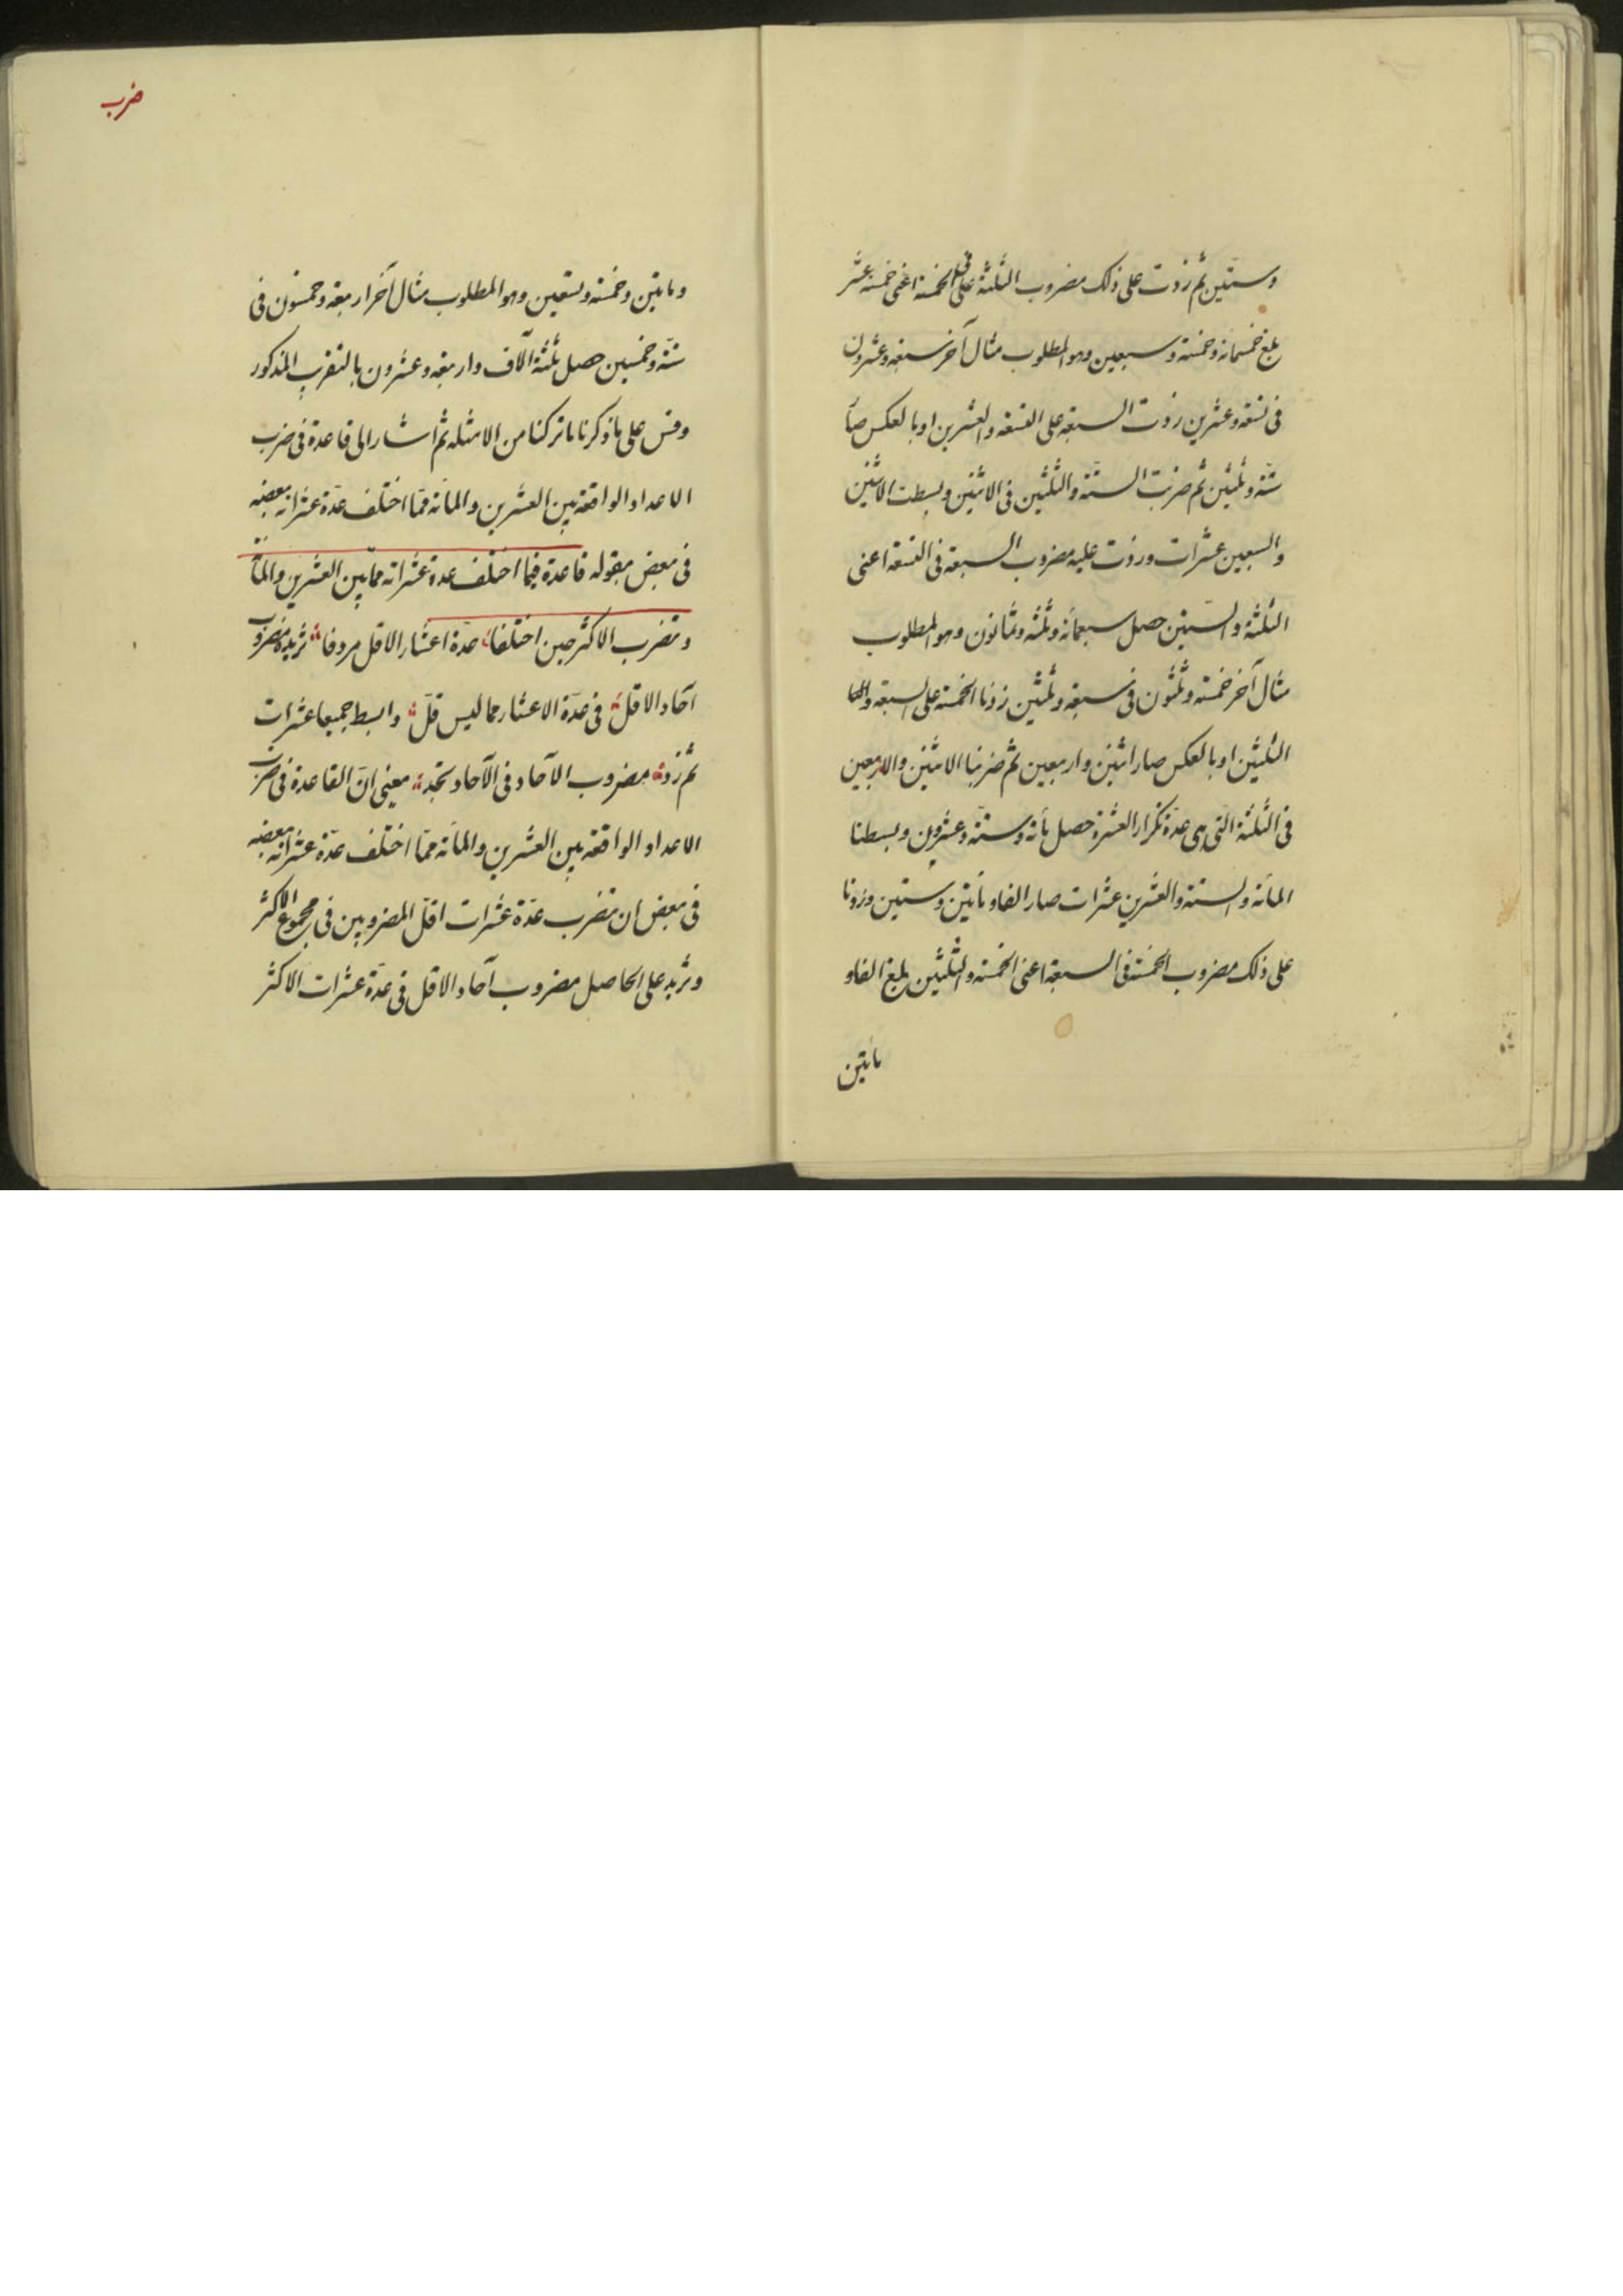 وستين ثم زدت على ذلك مضروب الثلثة فى الخمسة اعنى خمسة عشر
بلغ خمسمائة وخمسة وسبعين وهو المطلوب مثال آخر سبعة وعشرون
فى تسعة وعشرين زدت السبعة على التسعة والعشرين او بالعكس صار
ستة وثلثين ثم ضربت الستة والثلثين فى الاثنين وبسطت الاثنين
والسبعين عشرات وزدت عليه مضروب السبعة فى التسعة اعنى
الثلثة والستين حصل سبعمائة وثلثة وثمانون وهو المطلوب
مثال آخر خمسة وثلثون فى سبعة وثلثين زدنا الخمسة على السبعة و
الثلثين او بالعكس صار اثنين واربعين ثم ضربنا الاثنين والاربعين
فى الثلثة التى هى عدة تكرار العشرة حصل مائة وستة وعشرون وبسطنا
المائة والستة والعشرين عشرات صار الفا ومأتين وستين وزدنا
على ذلك مضروب الخمسة فى السبعة اعنى الخمسة والثلثين بلغ الفا و
مائتين
ضرب
ومايتين وخمسة وتسعين وهو المطلوب مثال آخر اربعة وخمسون فى
ستة وخمسين حصل ثلثة آلاف واربعة وعشرون بالتقريب المذكور
وقس على ما ذكرنا ما تركنا من الامثلة ثم اشار الى قاعدة فى ضرب
الاعداد الواقعة بين العشرين والمائة مما اختلف عدة عشراته بعضه
فى بعض بقوله قاعدة فيما اختلف عدة عشراته مما بين العشرين والمائة
وتضرب الاكثر حين اختلفا عدة اعشار الاقل مردفا تزيده مضروب
آحاد الاقل فى عدة الاعشار مما ليس قل وابسط جميعا عشرات
ثم زد مضروب الآحاد فى الآحاد تجد يعنى ان القاعدة فى ضرب
الاعداد الواقعة بين العشرين والمائة مما اختلف عدة عشراته بعضه
فى بعض ان تضرب عدة عشرات اقل المضروبين فى مجموع الاكثر
وتزيد على الحاصل مضروب آحاد الاقل فى عدة عشرات الاكثر